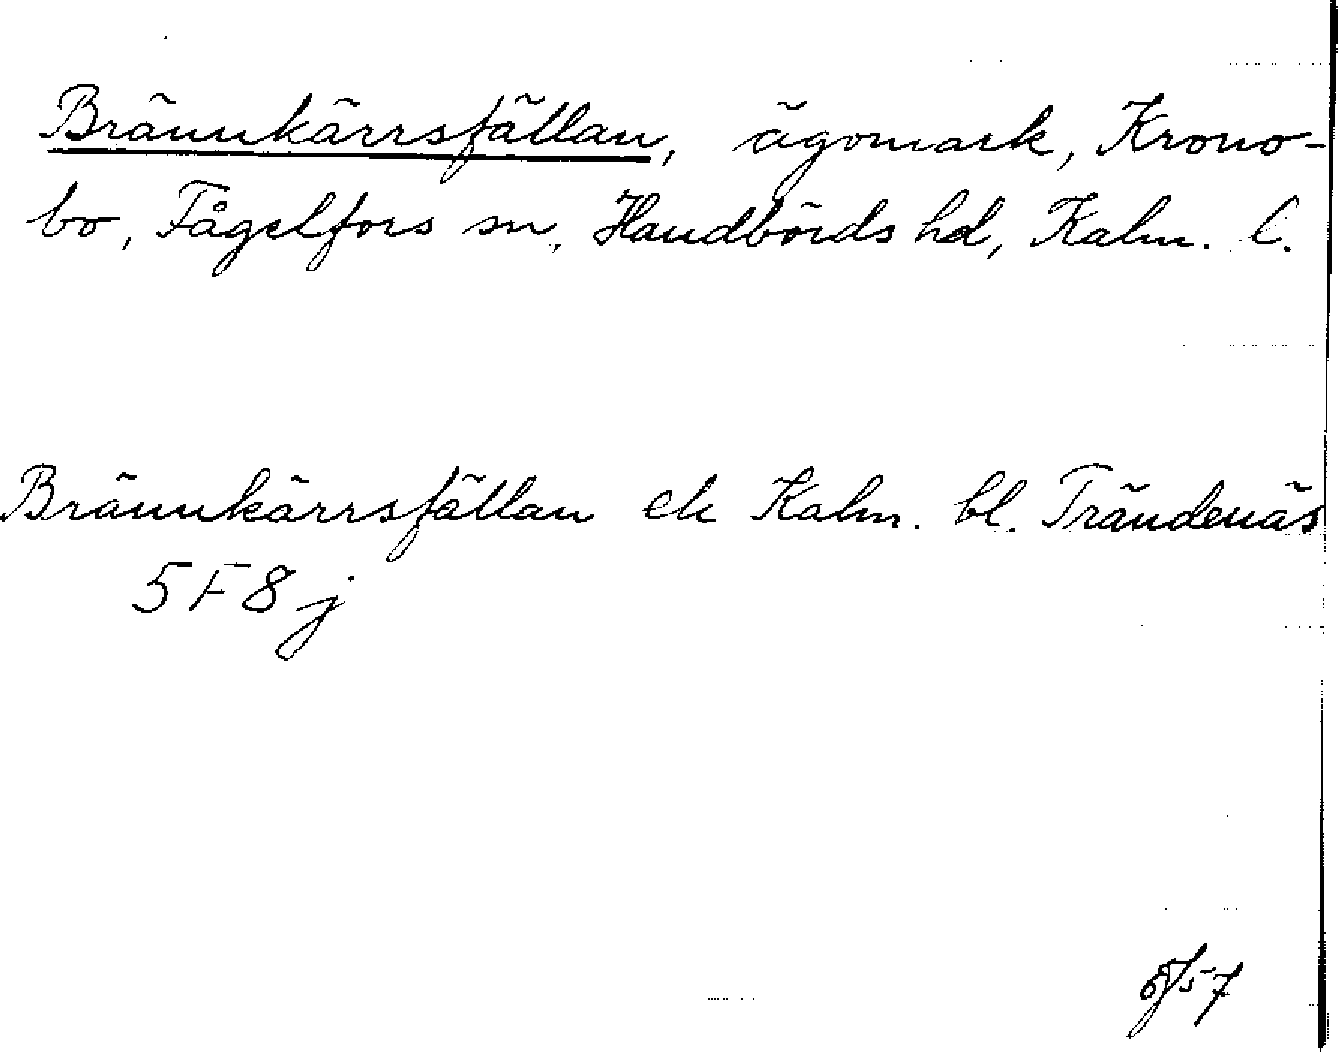 Brännkärrsfällan, ägomark, Krono-
bo, Fågelfors sn, Handbörds hd, Kalm. l.
Brännkärrsfällan ek Kalm. bl. Trändenäs
5 F 8 j